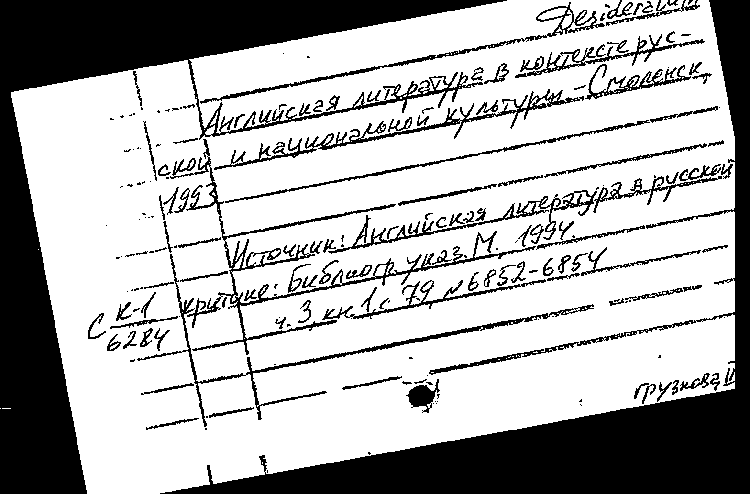 Desiderata
Английская литература в контексте рус-
ской и национальной культуры - Смоленск,
1993
Источник: Английская литература в русской
критике: Библиогр. указ. М. 1994.
ч. 3, кн. 1, с 79, № 6852-6854
С К-1
6284
грузнова